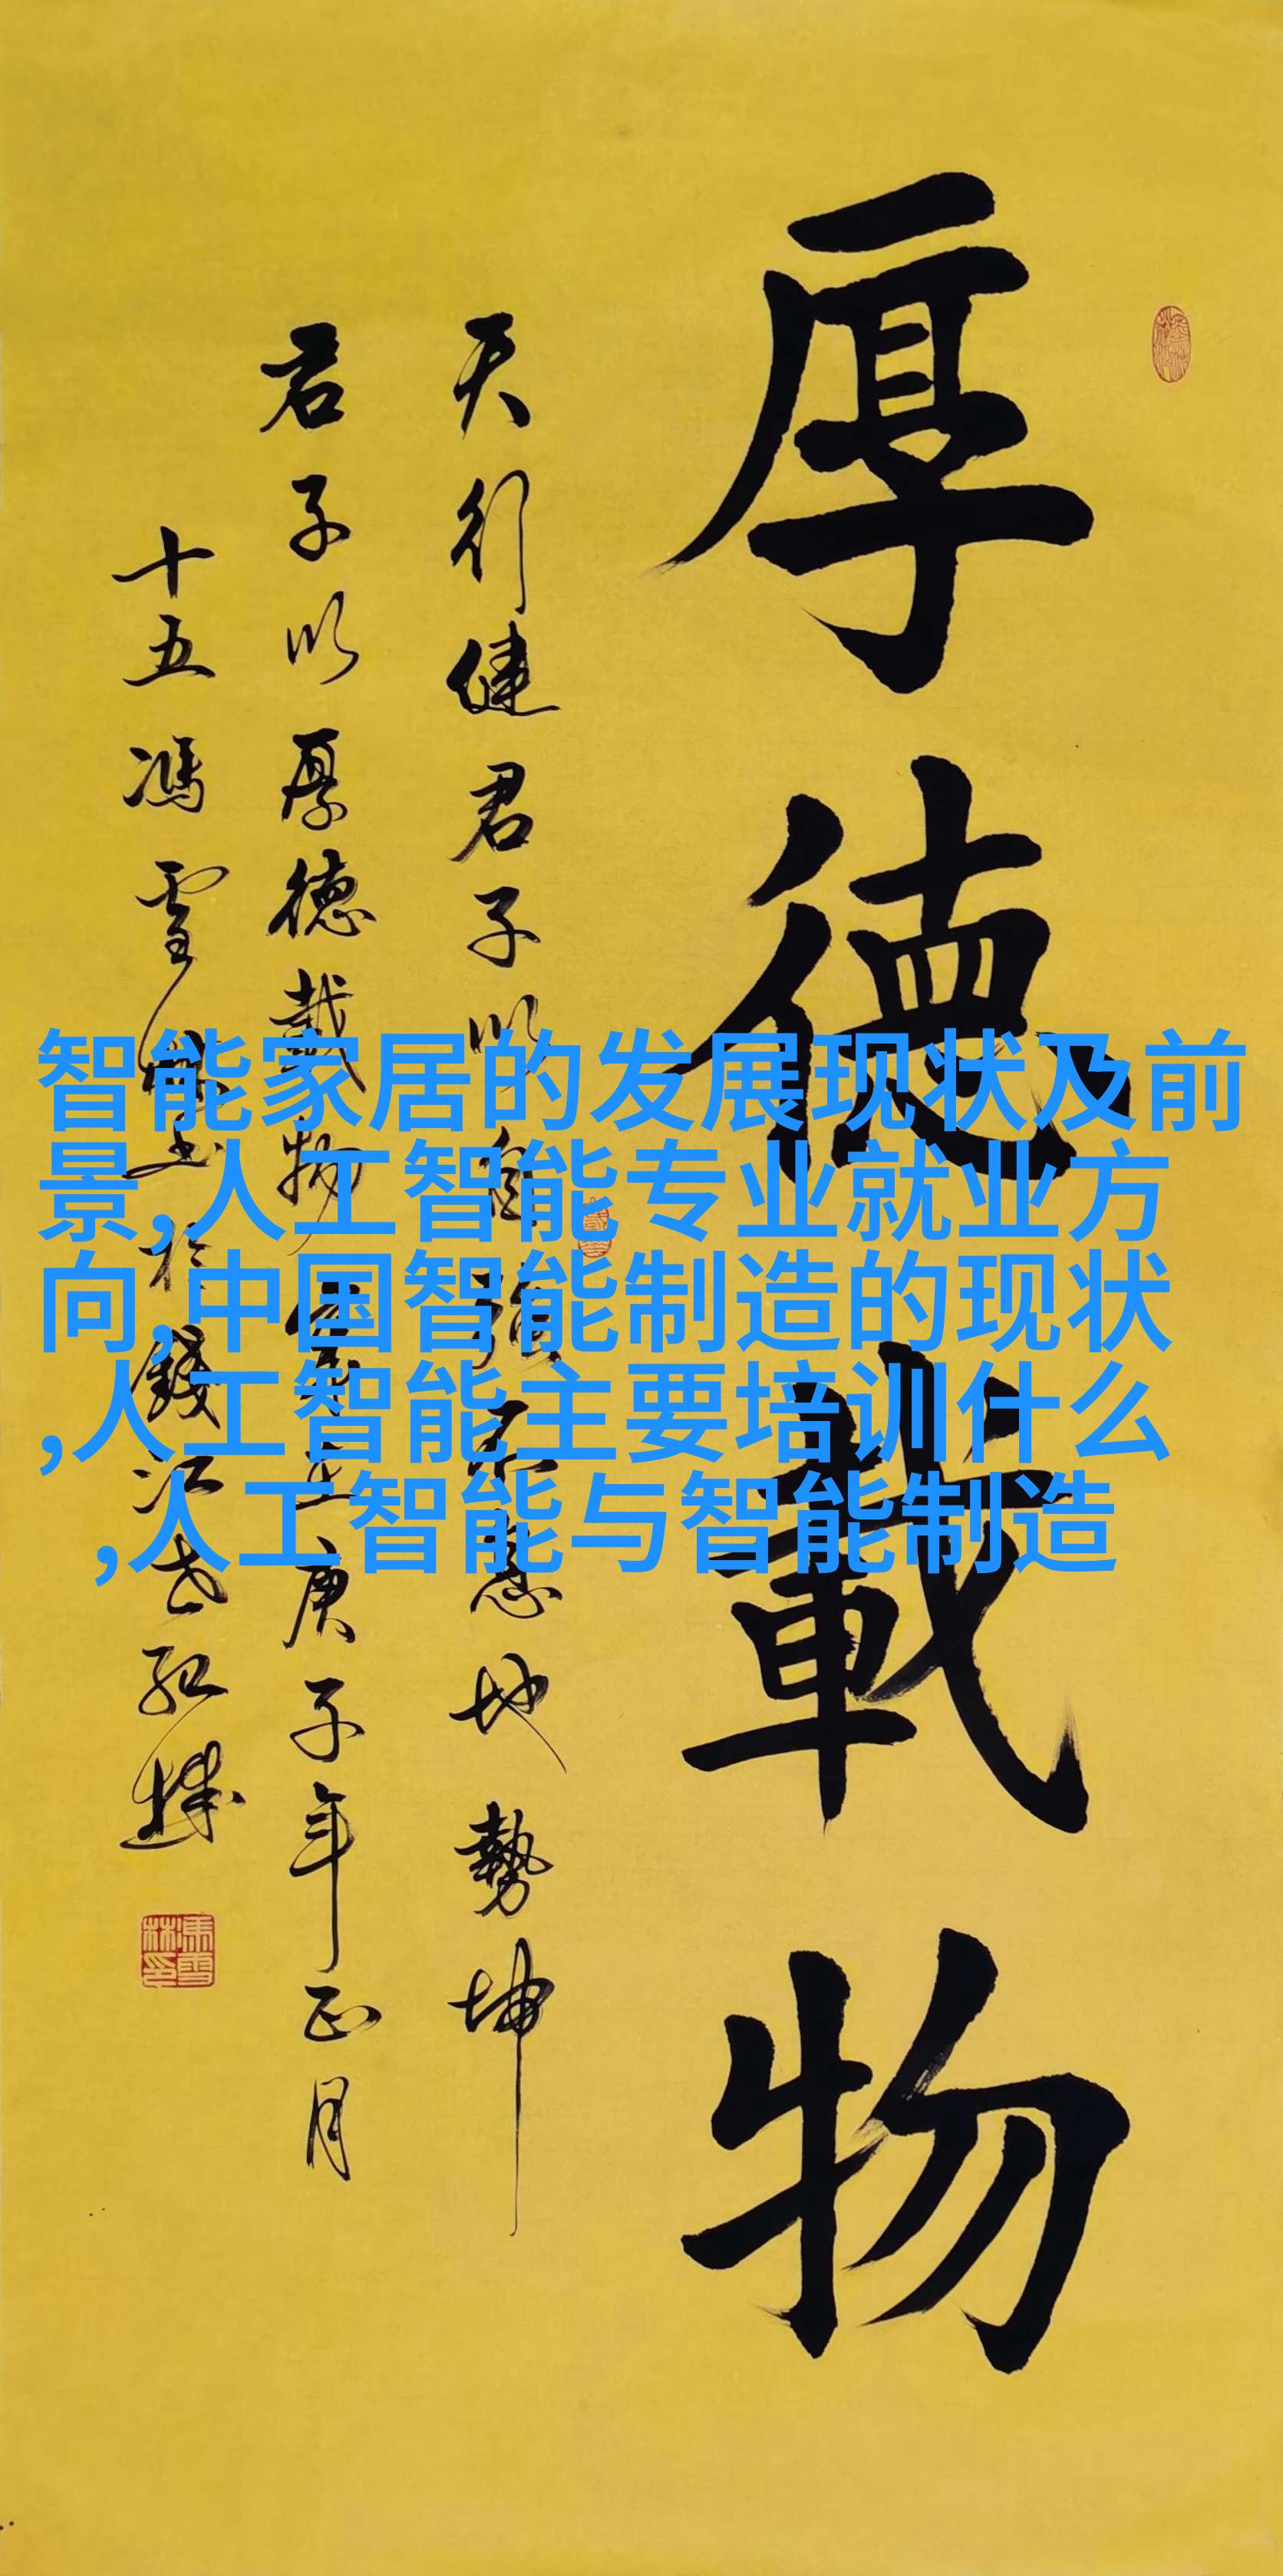 厚德載物
天行健君子以自強不息地勢坤
君子以厚德載物 庚子年正月
十五馮雪林書於錢江
智能家居的发展现状及前
景,人工智能专业就业方
向,中国智能制造的现状
,人工智能主要培训什么
,人工智能与智能制造
馮雪林印